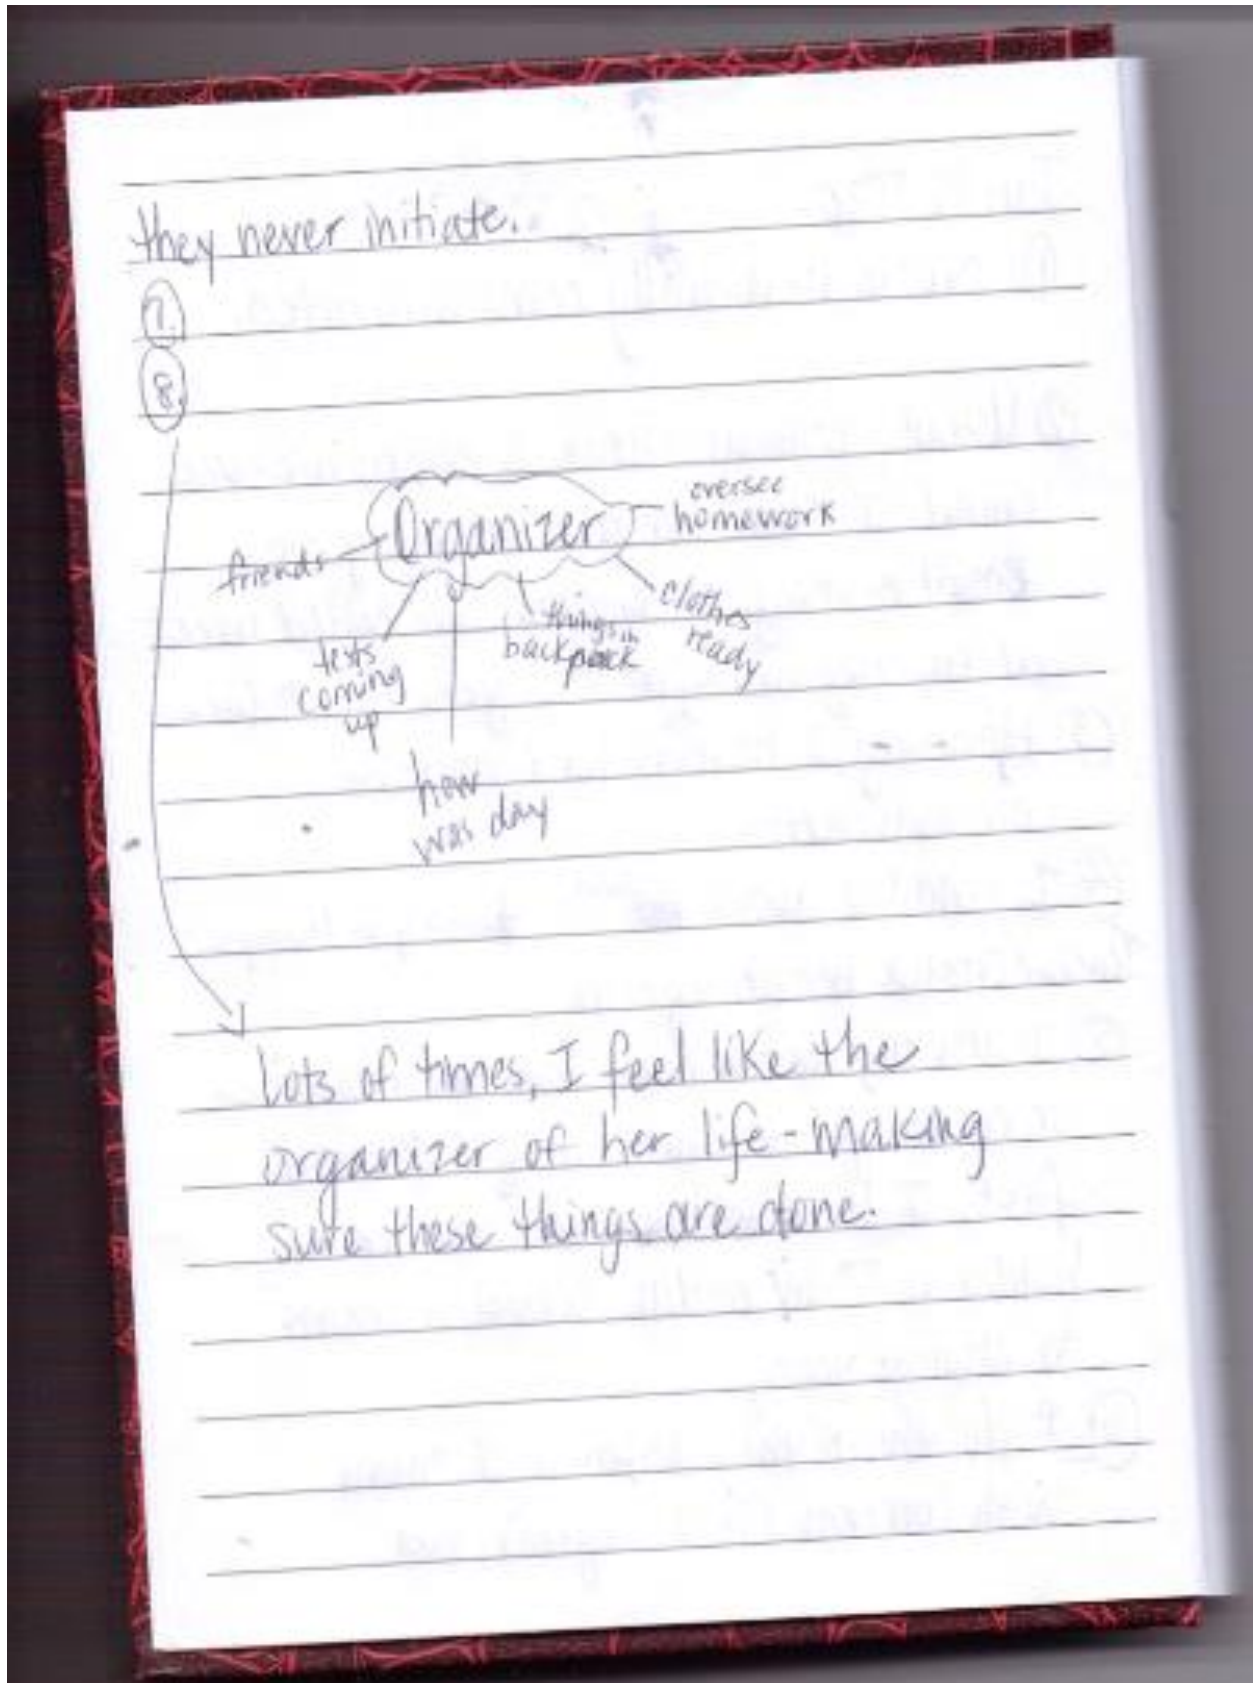 they never initiate.
7.
8.
Organizer
oversee
homework
friends
clothes
ready
things in
backpack
tests
coming
up
how
was day
lots of times, I feel like the
organizer of her life - making
sure these things are done.